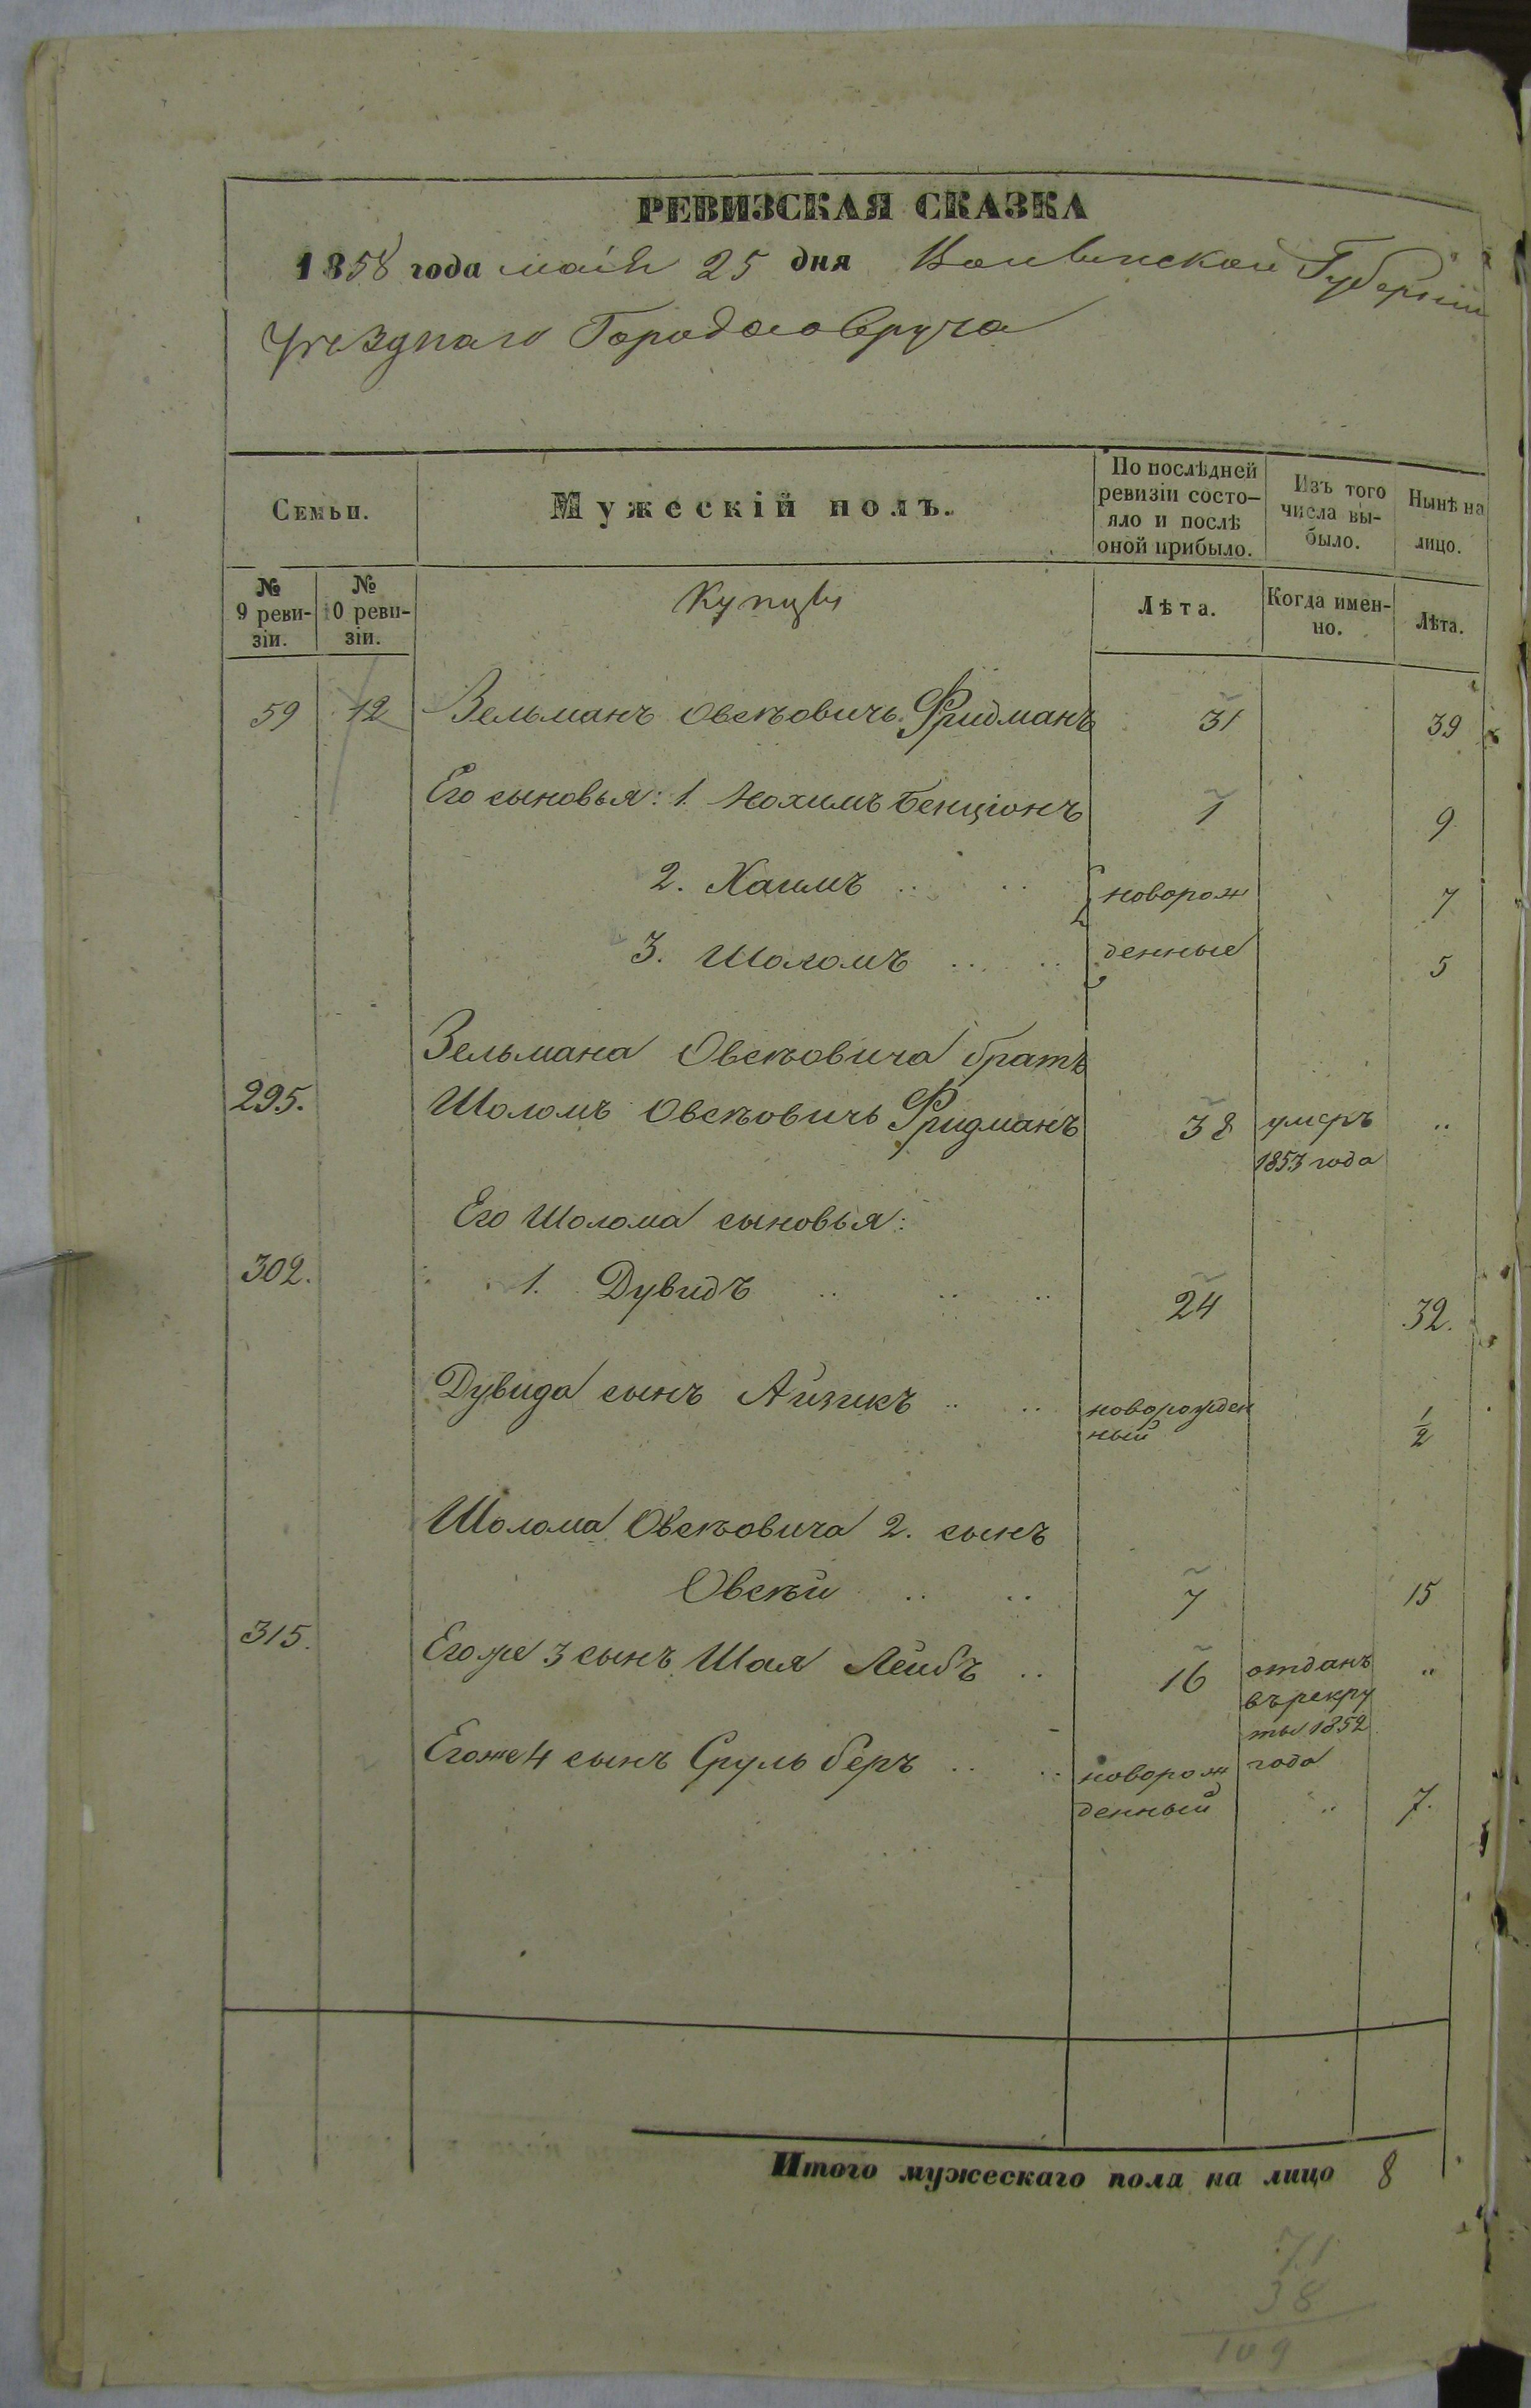 РЕВИЗСКАЯ СКАЗКА
1858 года маія 25 дня Волынской Губерніи
Уѣзднаго Города Овруча
Семьи.
Мужескій полъ.
По послѣдней ревизіи состо-
яло и послѣ
оной прибыло.
Изъ того
числа вы-
было.
Нынѣ на
лицо.
№
9 реви-
зіи.
№
10 реви-
зіи.
Купцы
Лѣта.
Когда имен-
но.
Лѣта.
59 12 Зельманъ Овсѣовичъ Фридманъ 31 39
Его сыновья: 1. Нохимъ Бенціонъ 1 9
2. Хаимъ .. .. новорож 7
3. Шоломъ .. .. денные 5
Зельмана Овсѣовича братъ
295. Шоломъ Овсѣовичъ Фридманъ 38 умеръ ..
1853 года
Его Шолома сыновья:
302. 1. Дувидъ .. .. .. 24 32.
Дувида сынъ Айзикъ .. .. новорожден 1/2
ный
Шолома Овсѣовича 2. сынъ
Овсѣй .. .. 7 15
315. Его же 3 сынъ Шая Лейбъ .. 16 отданъ ..
въ рекру
ты 1852
Его же 4 сынъ Сруль беръ .. .. новорож года
денный .. 7.
Итого мужескаго пола на лицо 8
71
38
109